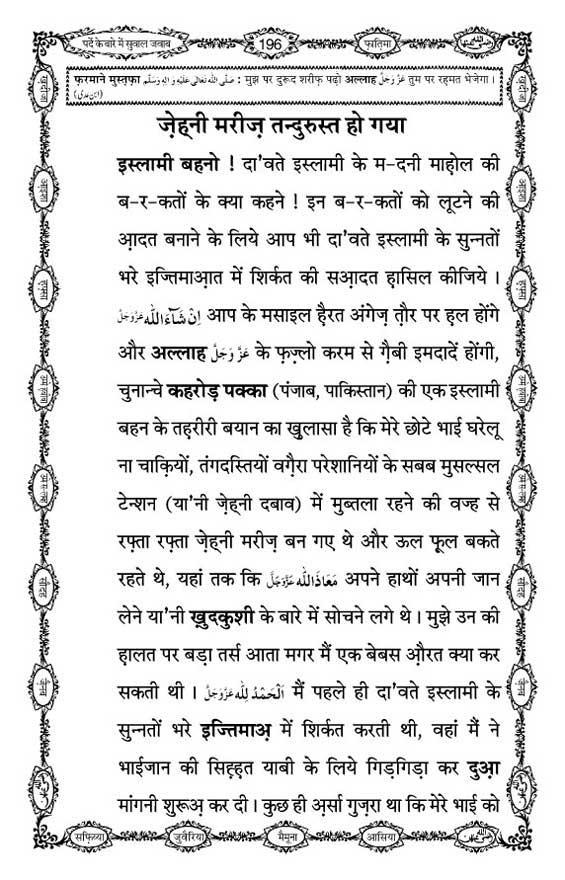 पर्दे के बारे में सुवाल जवाब
196
फ़ातिमा
फ़रमाने मुस्तफ़ा صَلَّى اللهُ تَعَالٰى عَلَيْهِ وَاٰلِهٖ وَسَلَّم : मुझ पर दुरूद शरीफ़ पढ़ो अल्लाह عَزَّ وَجَلَّ तुम पर रहमत भेजेगा ।
(ابن عدی)
ज़ेह्नी मरीज़ तन्दुरुस्त हो गया
इस्लामी बहनो ! दा'वते इस्लामी के म-दनी माहोल की
ब-र-कतों के क्या कहने ! इन ब-र-कतों को लूटने की
आ़दत बनाने के लिये आप भी दा'वते इस्लामी के सुन्नतों
भरे इज्तिमाआ़त में शिर्कत की सआ़दत हासिल कीजिये ।
اِنْ شَآءَالله عَزَّوَجَلَّ आप के मसाइल हैरत अंगेज़ त़ौर पर ह़ल होंगे
और अल्लाह عَزَّ وَجَلَّ के फ़ज़्लो करम से ग़ैबी इमदादें होंगी,
चुनान्चे कहरोड़ पक्का (पंजाब, पाकिस्तान) की एक इस्लामी
बहन के तह़रीरी बयान का खुलासा है कि मेरे छोटे भाई घरेलू
ना चाक़ियों, तंगदस्तियों वग़ैरा परेशानियों के सबब मुसल्सल
टेन्शन (या'नी ज़ेह्नी दबाव) में मुब्तला रहने की वज्ह से
रफ़्ता रफ़्ता ज़ेह्नी मरीज़ बन गए थे और ऊल फूल बकते
रहते थे, यहां तक कि مَعَاذَالله عَزَّوَجَلَّ अपने हाथों अपनी जान
लेने या'नी ख़ुदकुशी के बारे में सोचने लगे थे । मुझे उन की
हालत पर बड़ा तर्स आता मगर मैं एक बेबस औ़रत क्या कर
सकती थी । اَلْحَمْدُ لِلّٰه عَزَّوَجَلَّ मैं पहले ही दा'वते इस्लामी के
सुन्नतों भरे इज्तिमाअ़ में शिर्कत करती थी, वहां मैं ने
भाईजान की सिह़्ह़त याबी के लिये गिड़गिड़ा कर दुआ़
मांगनी शुरूअ़ कर दी । कुछ ही अ़र्सा गुज़रा था कि मेरे भाई को
सफ़िय्या
जुवैरिया
मैमूना
आसिया